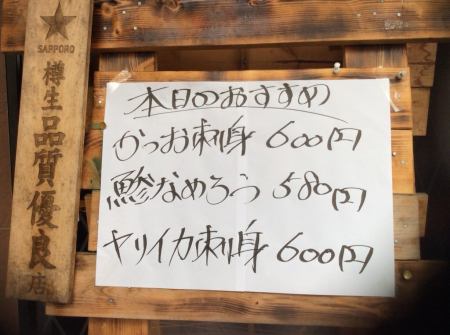 SAPPORO
樽生品質優良店
本日のおすすめ
かつお刺身 600円
鯵なめろう 580円
ヤリイカ刺身 600円